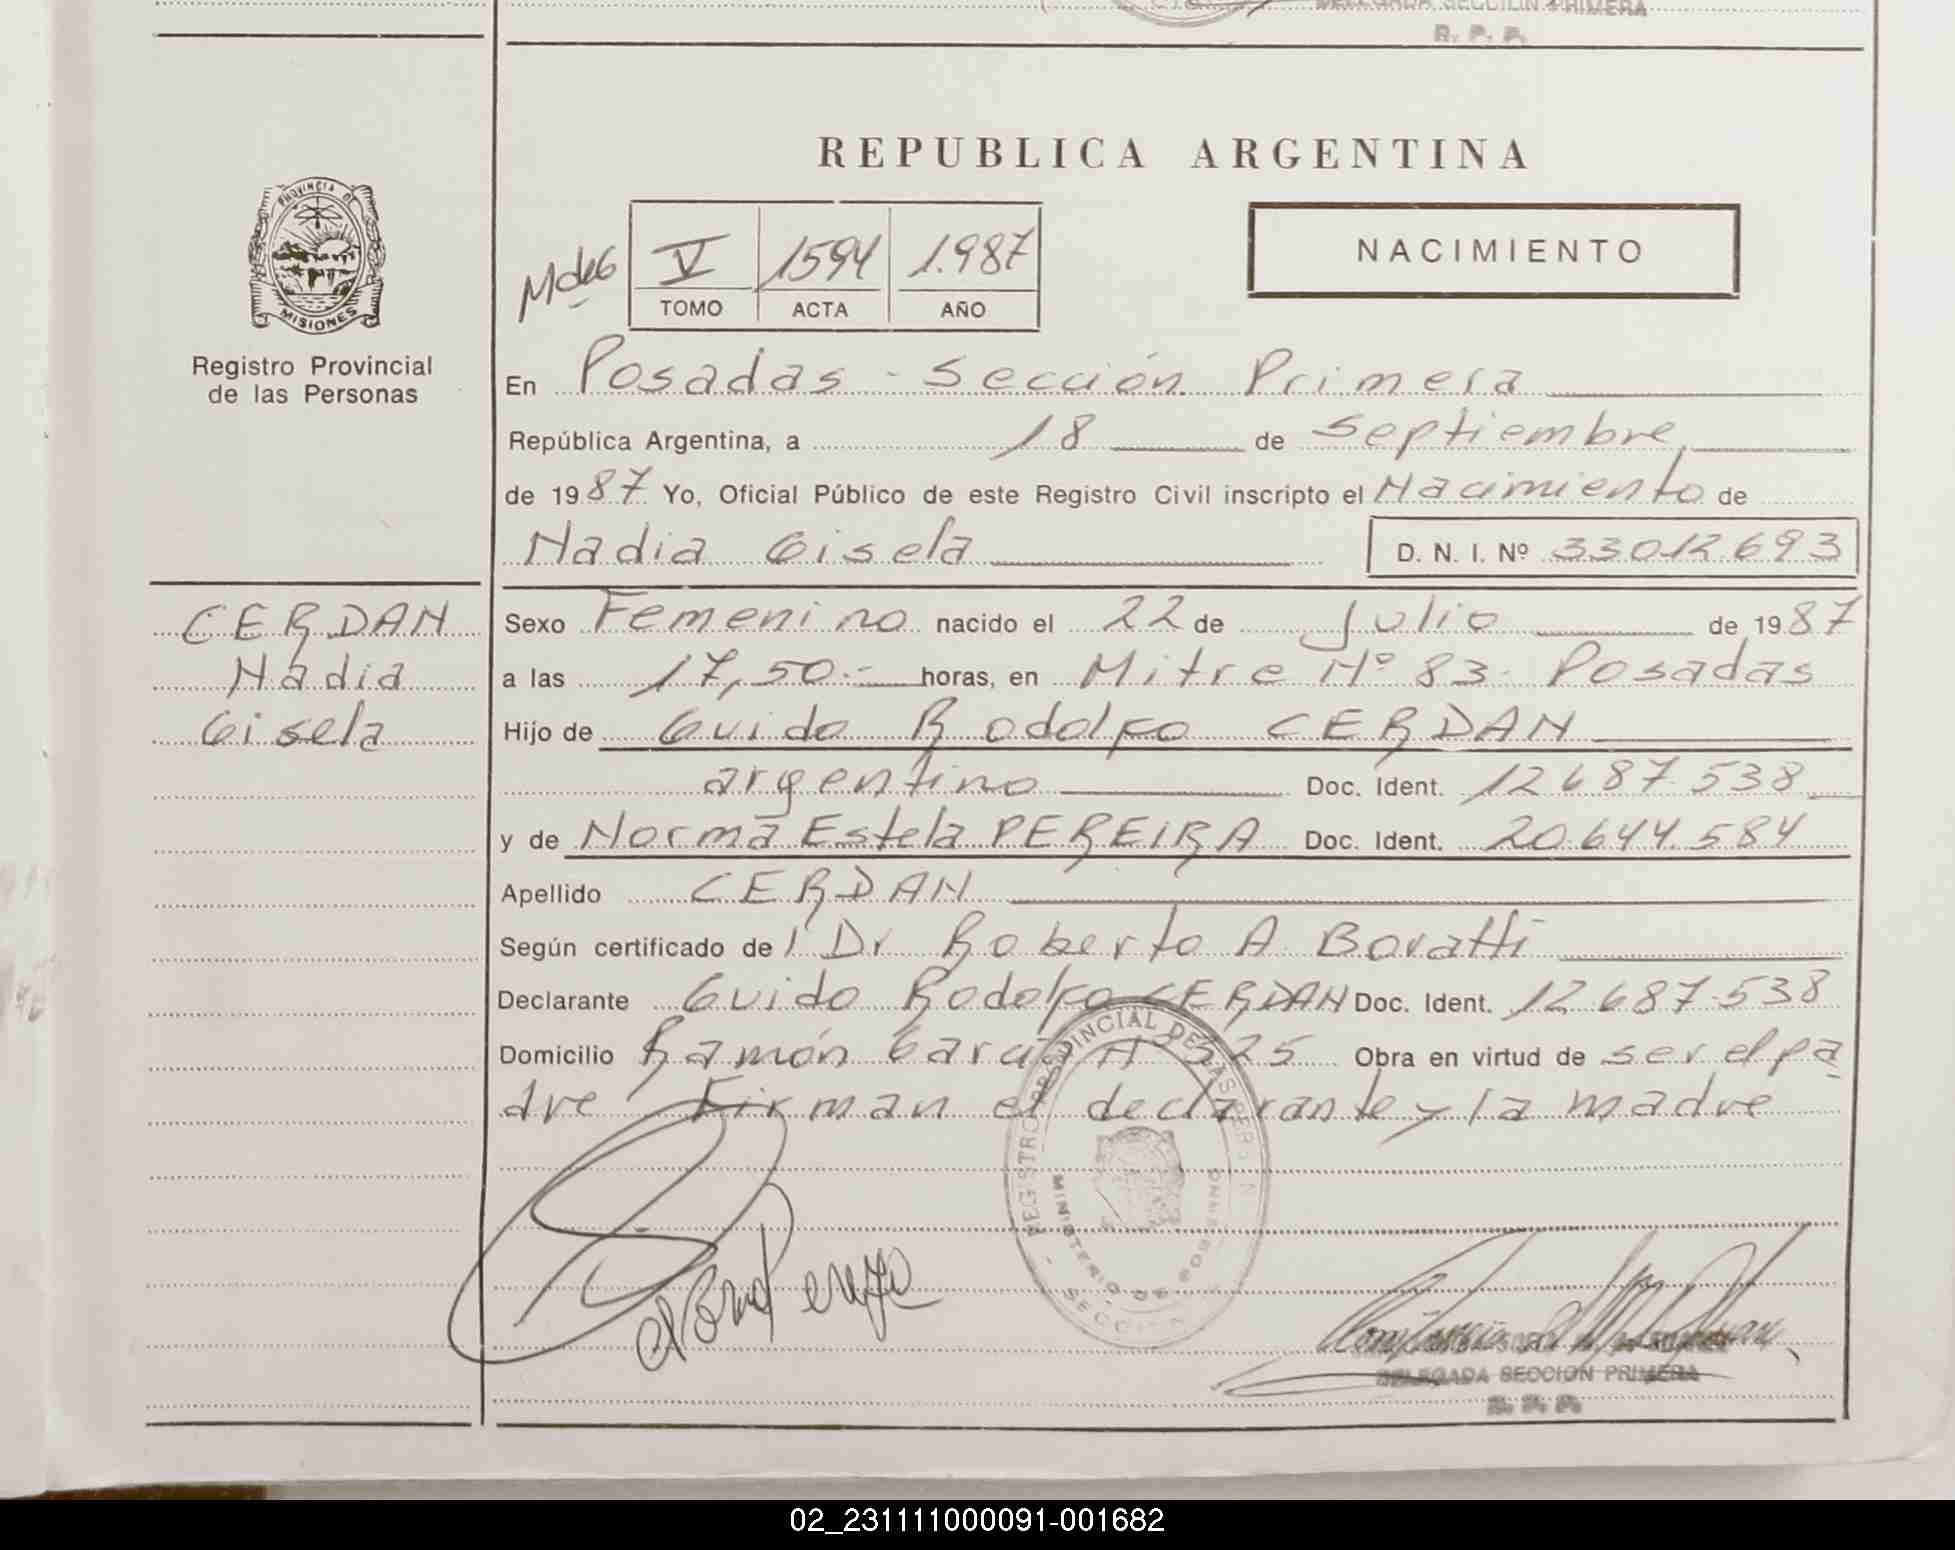 DELEGADA SECCION PRIMERA
R. P. P.
REPUBLICA ARGENTINA
PROVINCIA DE
MISIONES
Registro Provincial
de las Personas
V 1594 1.987
TOMO ACTA AÑO
NACIMIENTO
En Posadas - Sección Primera
República Argentina, a 18 de septiembre
de 1987 Yo, Oficial Público de este Registro Civil inscripto el Nacimiento de
Nadia Gisela D. N. I. Nº 33.012.693
CERDAN
Nadia
Gisela
Sexo Femenino nacido el 22 de Julio de 1987
a las 17,50.- horas, en Mitre Nº 83. Posadas
Hijo de Guido Rodolfo CERDAN
argentino Doc. Ident. 12.687.538
y de Norma Estela PEREIRA Doc. Ident. 20.644.584
Apellido CERDAN
Según certificado del Dr Roberto A. Boratti
Declarante Guido Rodolfo CERDAN Doc. Ident. 12.687.538
Domicilio Ramón García Nº 525 Obra en virtud de ser el pa
dre Firman el declarante y la madre
REGISTRO PROVINCIAL DE LAS PERSON
MINISTERIO DE GOBIERNO
SECCION
DELEGADA SECCION PRIMERA
R. P. P.
02_231111000091-001682